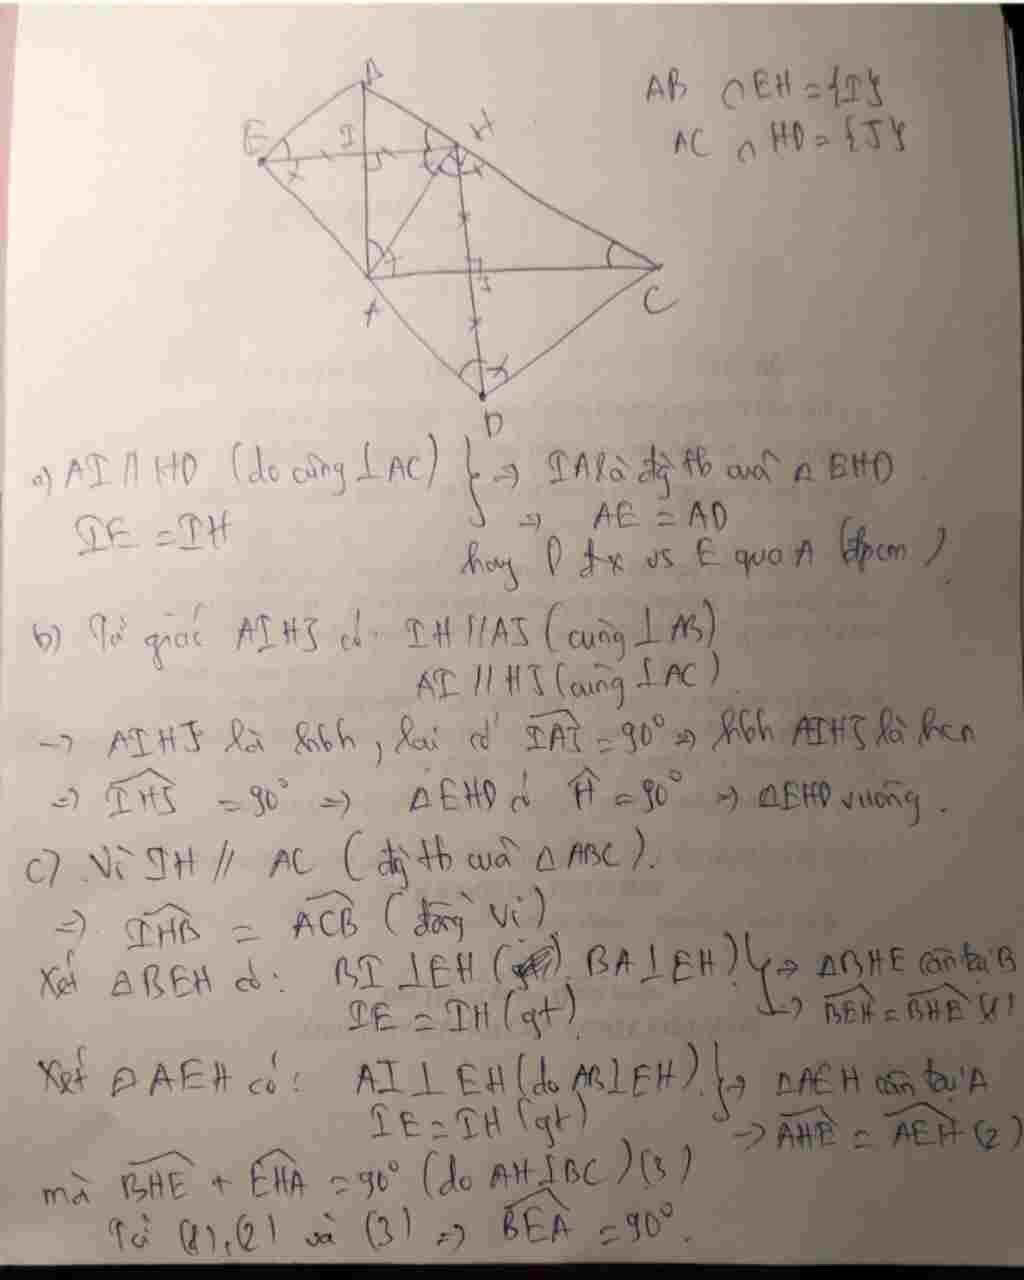 AB ∩ EH = {I}
AC ∩ HD = {J}
B
E
I
H
J
A
C
D
a) AI // HD (do cùng ⊥ AC) } => IA là đg tb cuả △ EHD.
IE = IH
=> AE = AD
hay D đx vs E qua A (đpcm)
b) Tứ giác AIHJ có: IH // AJ (cùng ⊥ AB)
AI // HJ (cùng ⊥ AC)
-> AIHJ là hbh, lại có IAJ = 90° => hbh AIHJ là hcn
=> IHJ = 90° => △EHD có H = 90° -> △EHD vuông.
c) Vì IH // AC (đg tb cuả △ ABC).
=> IHB = ACB (đồng vị)
Xét △BEH có: BI ⊥ EH ( BA ⊥ EH) } => △BHE cân tại B
IE = IH (gt) -> BEH = BHE (1)
Xét △AEH có: AI ⊥ EH (do AB ⊥ EH) } -> △AEH cân tại A
IE = IH (gt)
-> AHE = AEH (2)
mà BHE + EHA = 90° (do AH ⊥ BC) (3)
Từ (1), (2) và (3) => BEA = 90°.